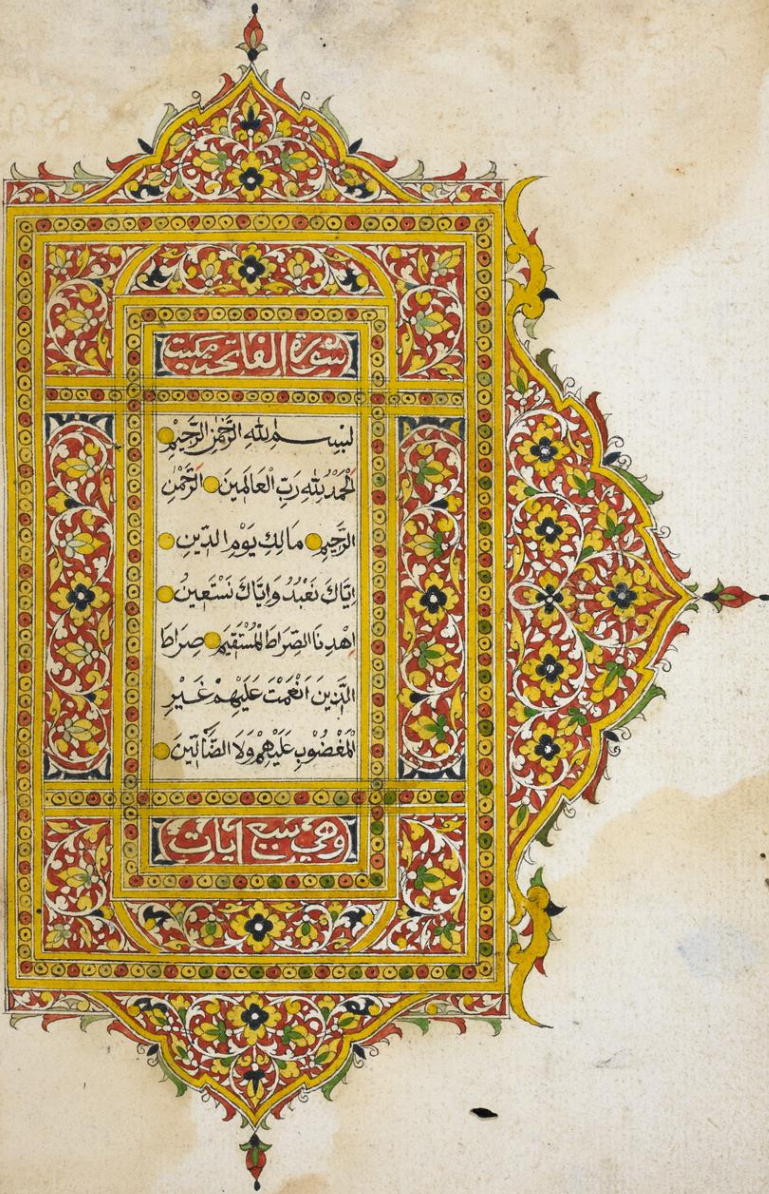 سورة الفاتحة مكية
بِسْمِ اللهِ الرَّحْمٰنِ الرَّحِيْمِ
اَلْحَمْدُ لِلّٰهِ رَبِّ الْعَالَمِينَ الرَّحْمٰنِ
الرَّحِيمِ مَالِكِ يَوْمِ الدِّينِ
اِيَّاكَ نَعْبُدُ وَاِيَّاكَ نَسْتَعِينُ
اِهْدِنَا الصِّرَاطَ الْمُسْتَقِيمَ صِرَاطَ
الَّذِينَ اَنْعَمْتَ عَلَيْهِمْ غَيْرِ
الْمَغْضُوْبِ عَلَيْهِمْ وَلَا الضَّالِّينَ
وهي سبع ايات